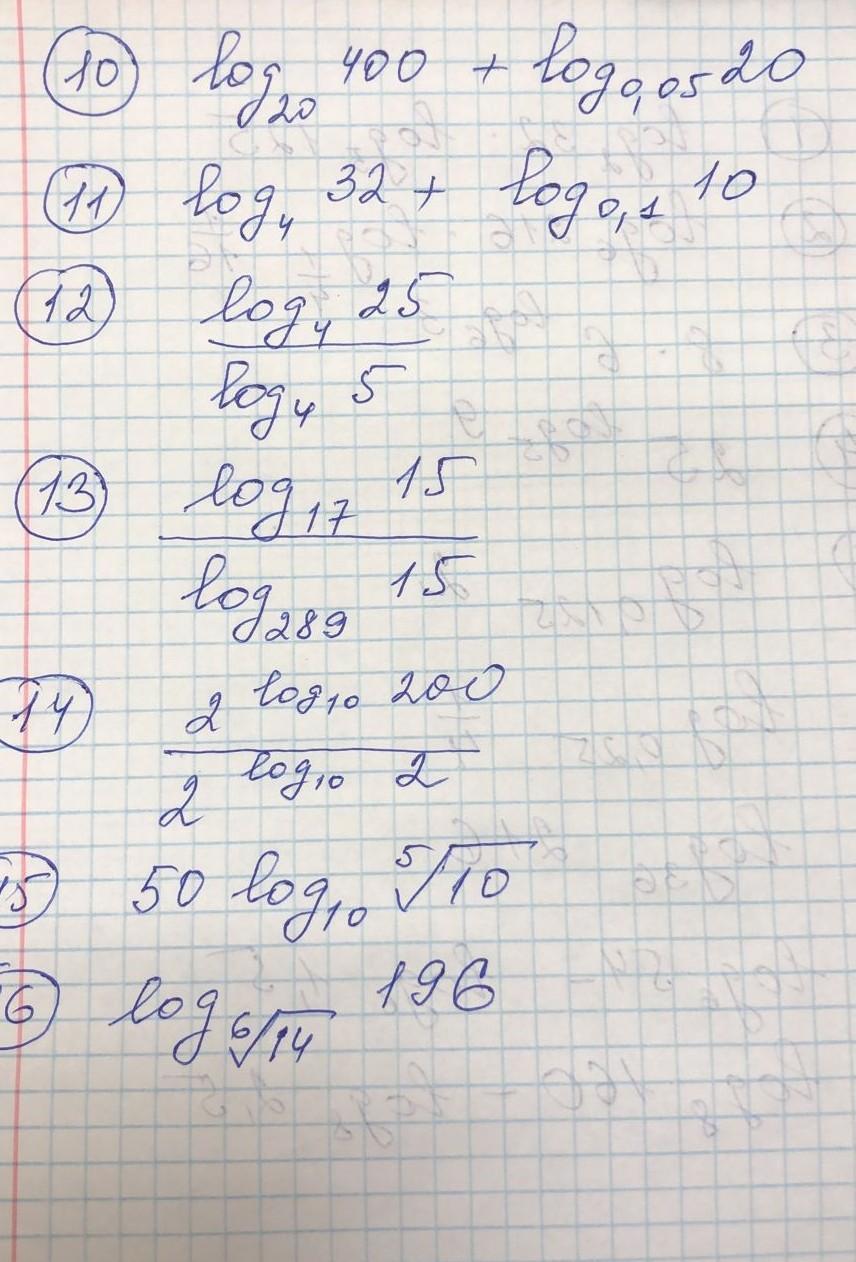 10 log₂₀ 400 + log₀,₀₅ 20
11 log₄ 32 + log₀,₁ 10
12 log₄ 25
log₄ 5
13 log₁₇ 15
log₂₈₉ 15
14 2^log₁₀ 200
2^log₁₀ 2
15 50 log₁₀ ⁵√10
6 log ⁶√14 196